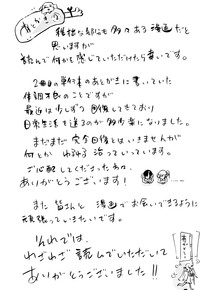 あとがき
複雑な部分も多々ある漫画だと
思いますが
読んで何かを感じていただけたら幸いです。
2の単行本のあとがきに書いていた
体調不良のことですが
最近は少しずつ回復してきており
日常生活を送るのが多少楽になりました。
まだまだ完全回復とはいきませんが
何とか ゆるゆる 治っていっています。
ご心配してくださった方々
ありがとうございます!
また 皆さんと 漫画で お会いできるように
頑張っていきたいです。
それでは、
わざわざ 読んでいただいて
ありがとうございました!!